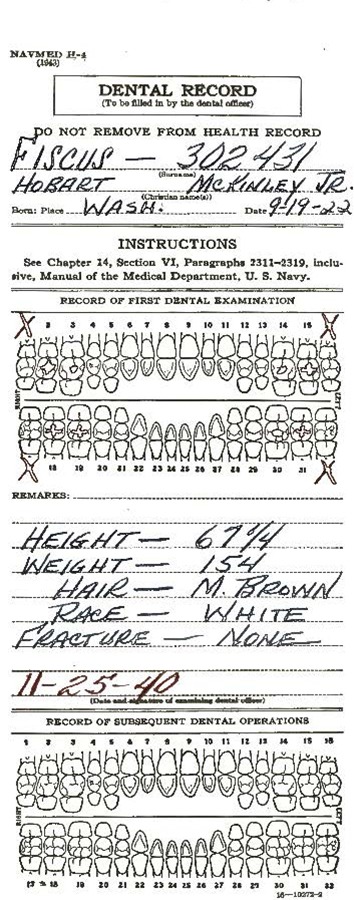 NAVMED H-4
(1943)
DENTAL RECORD
(To be filled in by the dental officer)
DO NOT REMOVE FROM HEALTH RECORD
FISCUS — 302 431
(Surname)
HOBART McKINLEY JR.
(Christian name(s))
Born: Place WASH. Date 9-19-22
INSTRUCTIONS
See Chapter 14, Section VI, Paragraphs 2311-2319, inclu-
sive, Manual of the Medical Department, U. S. Navy.
RECORD OF FIRST DENTAL EXAMINATION
2 3 4 5 6 7 8 9 10 11 12 13 14 15
RIGHT LEFT
18 19 20 21 22 23 24 25 26 27 28 29 30 31
REMARKS:
HEIGHT — 67 1/4
WEIGHT — 154
HAIR — M. BROWN
RACE — WHITE
FRACTURE — NONE
11-25-40
(Date and signature of examining dental officer)
RECORD OF SUBSEQUENT DENTAL OPERATIONS
1 2 3 4 5 6 7 8 9 10 11 12 13 14 15 16
RIGHT LEFT
17 18 19 20 21 22 23 24 25 26 27 28 29 30 31 32
16—10272-2